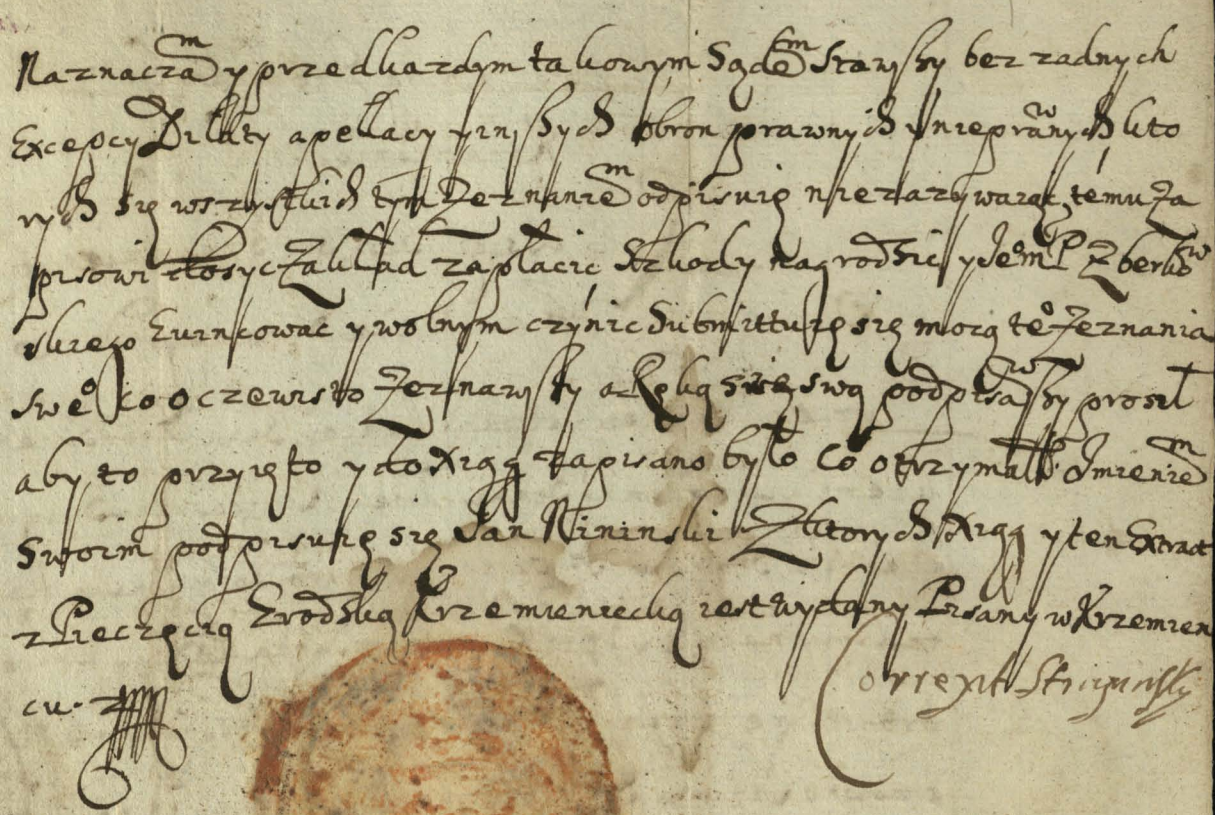 Naznaczam y przed kazdym takowym Sądem Stawszy bez zadnych
Excepcy Dilaty apellacy y inszych obron prawnych y nieprawnych kto
rych się wszystkich tym Zeznaniem odpisuię nic zazywaiąc temu Za
pisowi dosyc Zakład zapłacic Szkody nagrodzic y Je̊m P Zberow
skiego Ewincowac y wolnym czynic Submittuię się mocą te̊ Zeznania
swe̊ Co oczewisto Zeznawszy a Ręką swą podpisawszy prosił
aby to przyięto y do Xiąg zapisano było Co otrzymał Jmieniem
Swoim podpisuię się Jan Nininski Z ktorych Xiąg y ten Extract
z Pieczęcią Grodzką Krzemieniecką iest wydany Pisany w Krzemien
cu.
Correxit